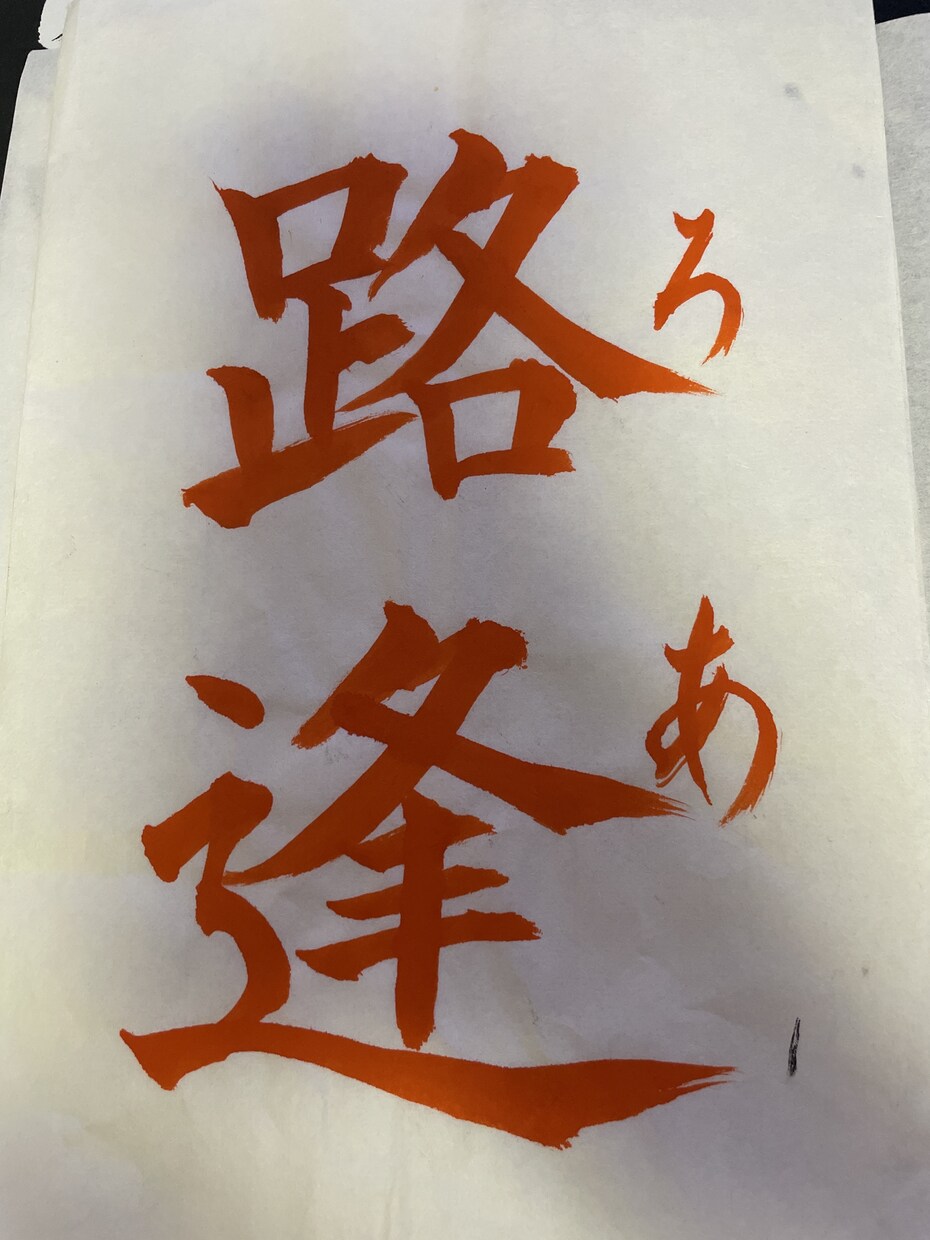 路逢
ろあ